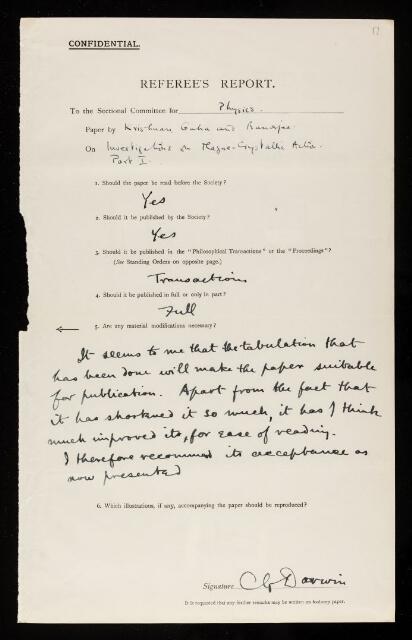 17
CONFIDENTIAL.
REFEREE'S REPORT.
To the Sectional Committee for Physics.
Paper by Krishnan Guha and Banerjee
On Investigations on Magne-Crystallic Action.
Part I.
1. Should the paper be read before the Society?
Yes
2. Should it be published by the Society?
Yes
3. Should it be published in the "Philosophical Transactions" or the "Proceedings"?
(See Standing Orders on opposite page.)
Transactions
4. Should it be published in full or only in part?
Full
5. Are any material modifications necessary?
It seems to me that the tabulation that
has been done will make the paper suitable
for publication. Apart from the fact that
it has shortened it so much, it has I think
much improved its, for ease of reading.
I therefore recommend its acceptance as
now presented
6. Which illustrations, if any, accompanying the paper should be reproduced?
Signature CG Darwin
It is requested that any further remarks may be written on ordinary paper.